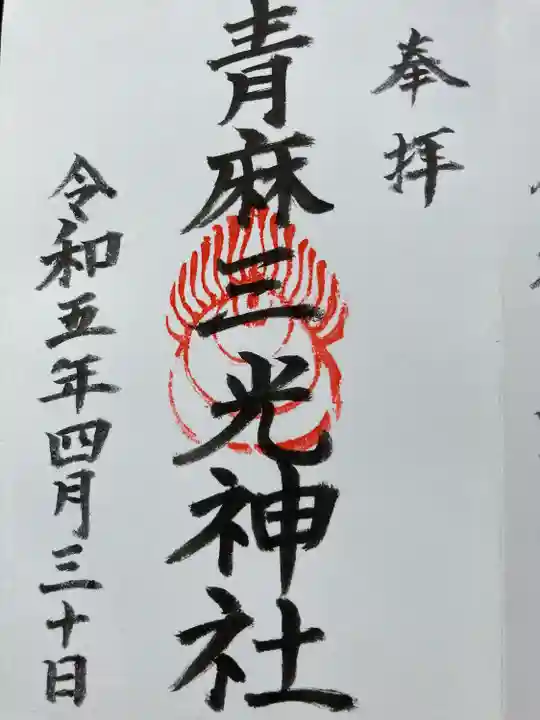 奉拝
青麻三光神社
令和五年四月三十日